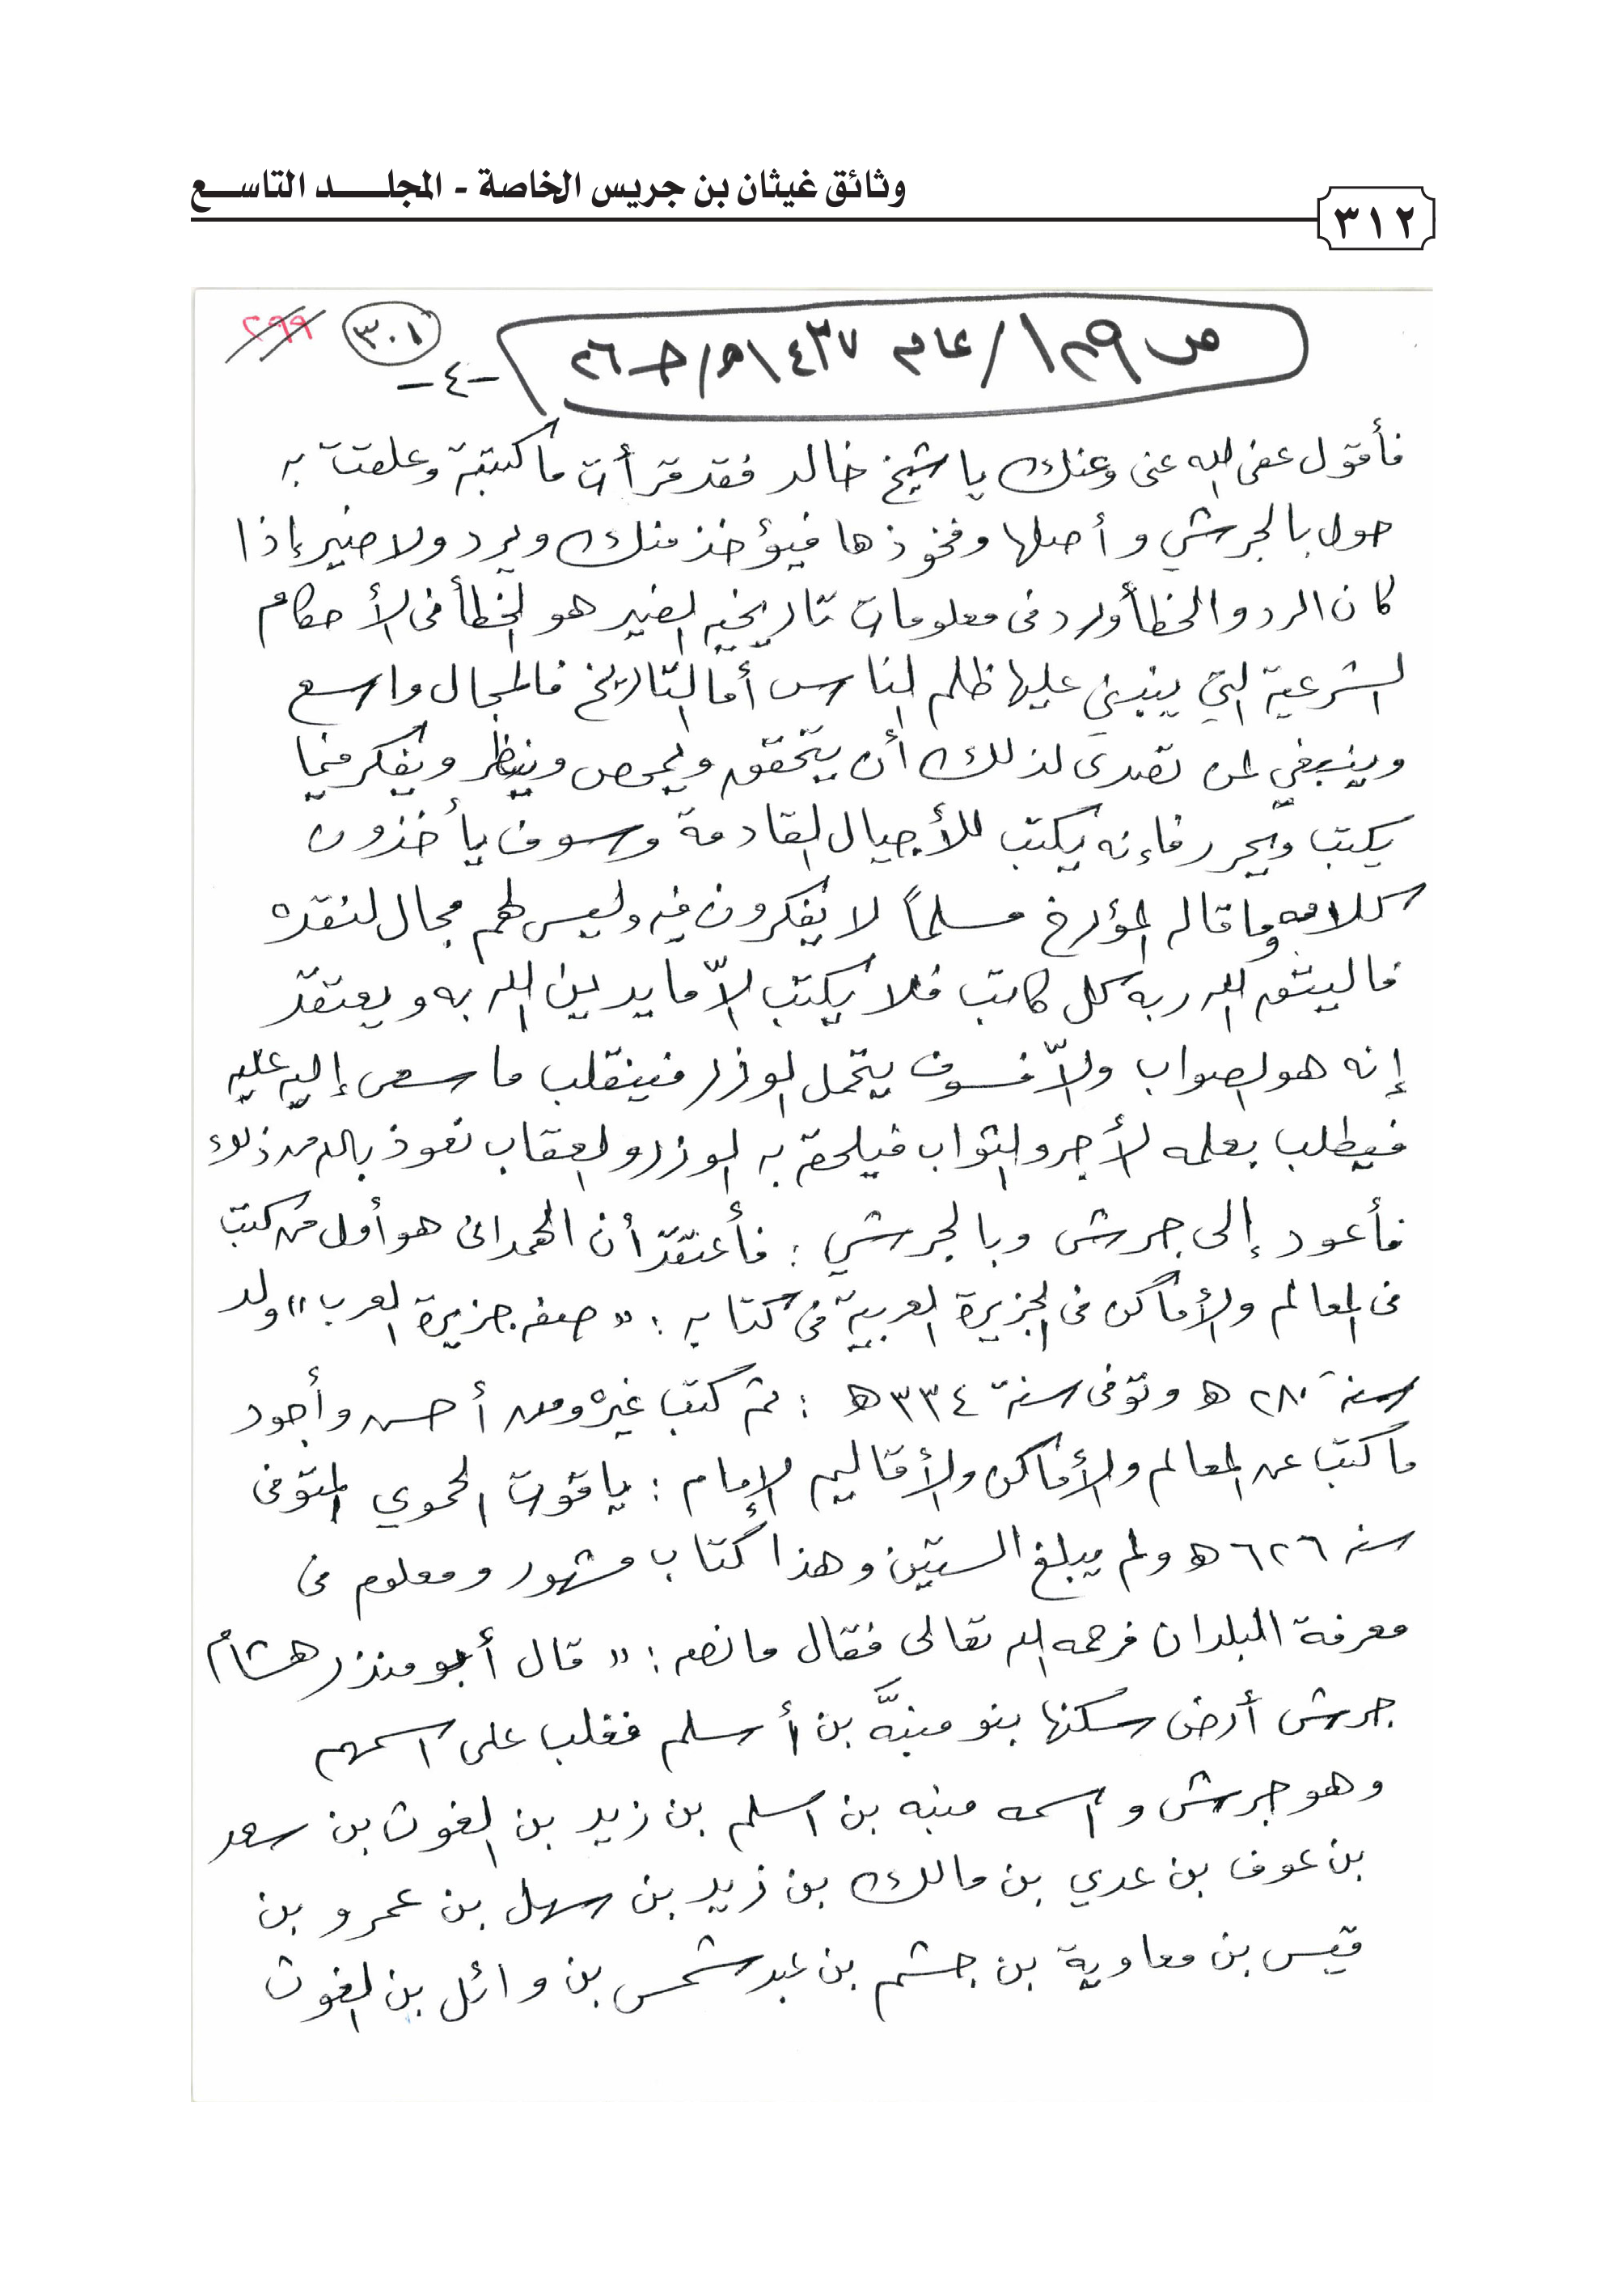 وثائق غيثان بن جريس الخاصة - المجلـــــد التاســـع
٣١٢
ص ١٢٩ / عام ١٤٣٧هـ / ج ٢٦
٣٠١
٢٩٩
-٤-
فأقول عفى الله عنى وعنك يا شيخ خالد فقد قرأت ما كتبته وعلقت به
حول بالجرشي وأصلها وفخوذها فيؤخذ منك ويرد ولا ضير إذا
كان الرد والخطأ ورد فى معلومات تاريخيه الضير هو الخطأ فى الأحكام
الشرعية التي ينبني عليها ظلم الناس أما التاريخ فالمجال واسع
وينبغي لمن تصدى لذلك أن يتحقق ويمحص وينظر ويفكر فيما
يكتب ويحرر فإنه يكتب للأجيال القادمة وسوف يأخذون
كلامه وما قاله المؤرخ مسلماً لا يفكرون فيه وليس لهم مجال لنقده
فاليتق الله ربه كل كاتب فلا يكتب إلاّ ما يدين الله به ويعتقد
إنه هو الصواب وإلاّ فسوف يتحمل الوزر فينقلب ما سعى إليه عليه
فيطلب بعلمه الأجر والثواب فيلحق به الوزر والعقاب نعوذ بالله من ذلك
فأعود إلى جرش وبالجرشي : فأعتقد أن الهمدانى هو أول من كتب
فى المعالم والأماكن فى الجزيرة العربية فى كتابه : « صفه جزيرة العرب » ولد
سنة ٢٨٠ هـ وتوفى سنة ٣٣٤ هـ : ثم كتب غيره ومن أحسن وأجود
ما كتب عن المعالم والأماكن والأقاليم الإمام : ياقوت الحموي المتوفى
سنه ٦٢٦ هـ ولم يبلغ الستين وهذا كتاب مشهور ومعلوم فى
معرفة البلدان فرحمه الله تعالى فقال ما نصه : « قال أبو منذر هشام
جرش أرض سكنها بنو منبَّه بن أسلم فغلب على اسمهم
وهو جرش واسمه منبه بن اسلم بن زيد بن الغوث بن سعد
بن عوف بن عدي بن مالك بن زيد بن سهل بن عمرو بن
قيس بن معاوية بن جشم بن عبد شمس بن وائل بن الغوث